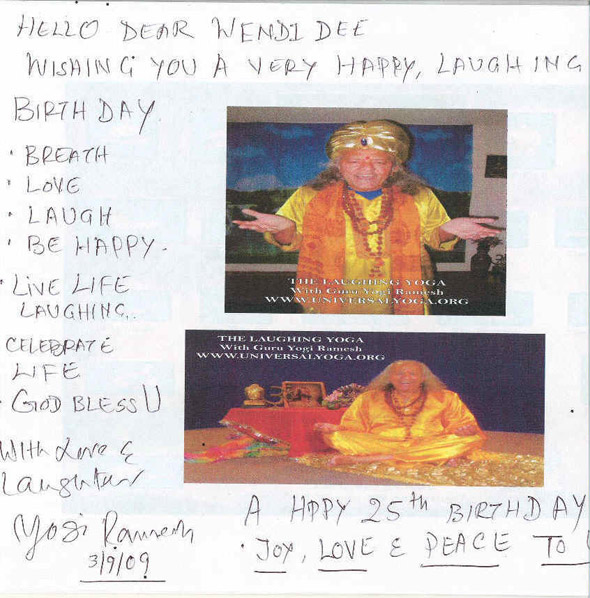 HELLO DEAR WENDI DEE
WISHING YOU A VERY HAPPY, LAUGHING
BIRTHDAY
· BREATH
· LOVE
· LAUGH
· BE HAPPY.
· LIVE LIFE
LAUGHING..
CELEBRATE
LIFE
· GOD BLESS U
With Love &
Laughter
Yogi Ramesh
3/9/09
THE LAUGHING YOGA
With Guru Yogi Ramesh
WWW.UNIVERSALYOGA.ORG
THE LAUGHING YOGA
With Guru Yogi Ramesh
WWW.UNIVERSALYOGA.ORG
A HPPY 25th BIRTHDAY
· JOY, LOVE & PEACE TO